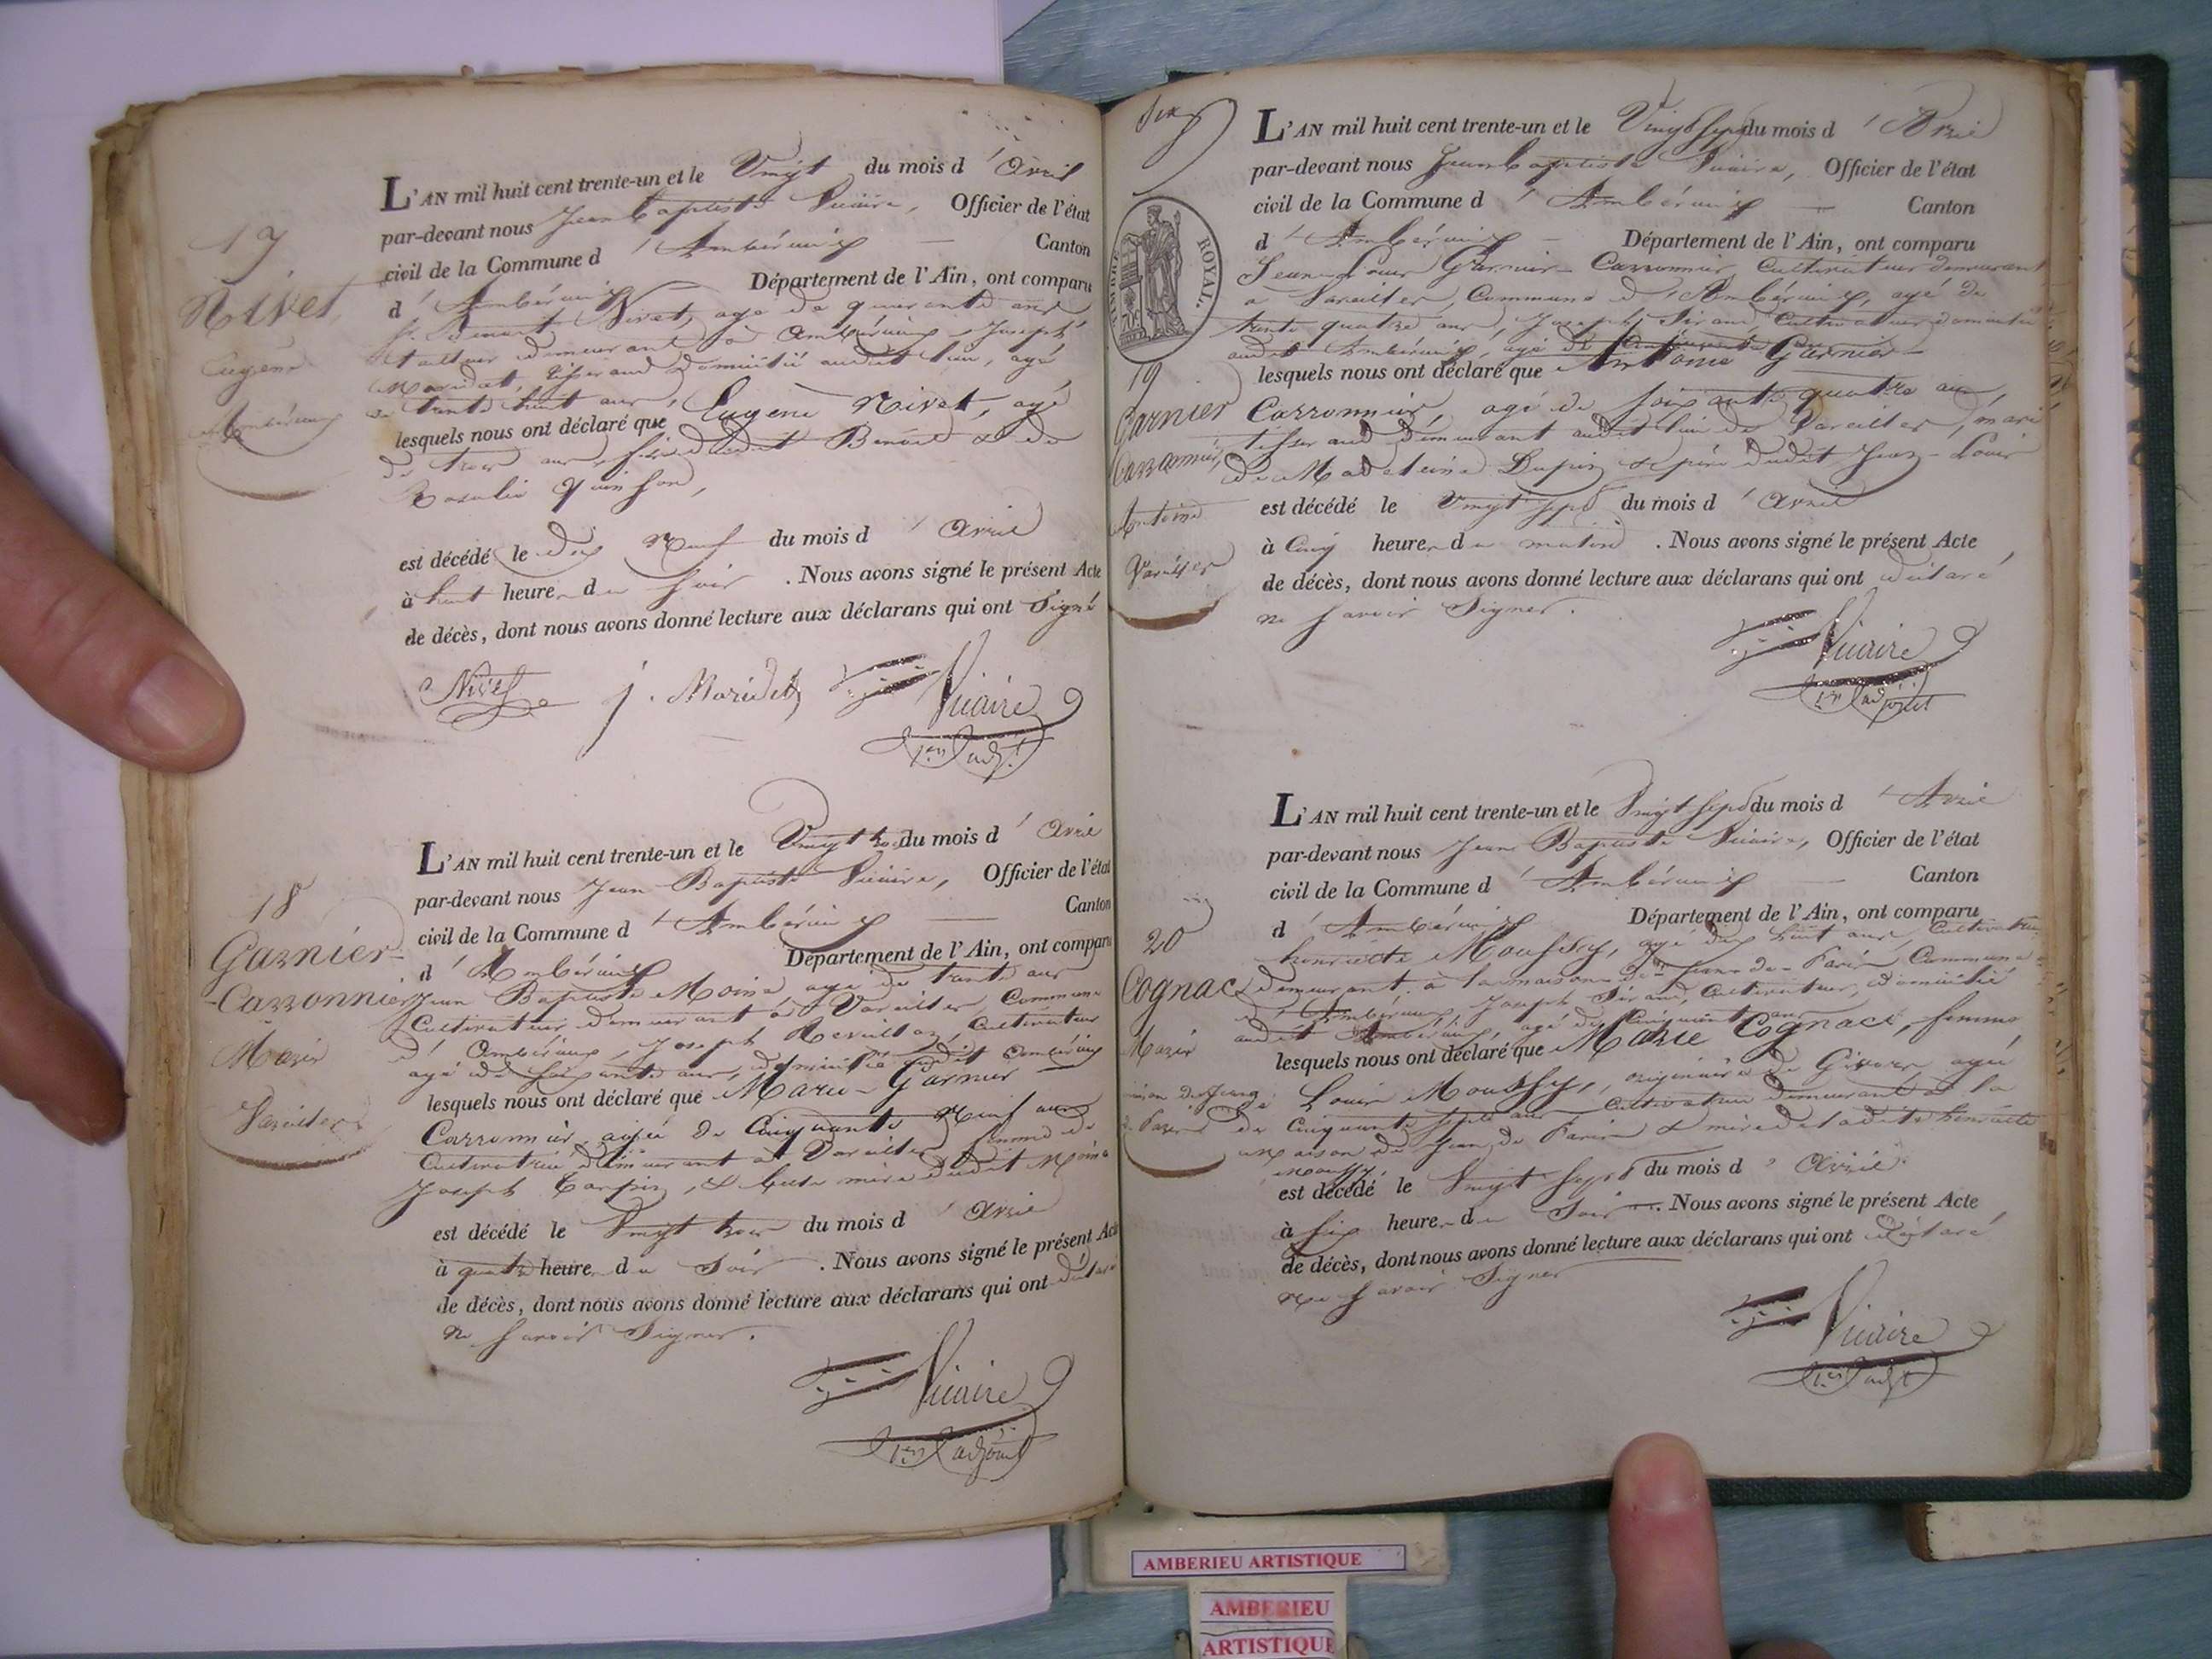 17
Nivet
Eugène
Ambérieux
L'AN mil huit cent trente-un et le Vingt du mois d'Avril
par-devant nous Jean Baptiste Vicaire, Officier de l'état
civil de la Commune d'Ambérieux Canton
d'Ambérieux Département de l'Ain, ont comparu
Nivet, agé de quarante ans
demeurant à Ambérieux, Joseph
Maridet, tisserand domicilié audit lieu, agé
de trente huit ans,
lesquels nous ont déclaré que Eugène Nivet, agé
de trois ans, fils dudit Benoit & de
Rosalie Quinson,
est décédé le dix Neuf du mois d'Avril
à huit heure du soir. Nous avons signé le présent Acte
de décès, dont nous avons donné lecture aux déclarans qui ont Signé
Nivet J. Maridet Vicaire
1er adjt
18
Garnier-
-Carronnier
Marie
Vareilles
L'AN mil huit cent trente-un et le Vingt trois du mois d'Avril
par-devant nous Jean Baptiste Vicaire, Officier de l'état
civil de la Commune d'Ambérieux Canton
d'Ambérieux Département de l'Ain, ont comparu
Jean Baptiste Moine agé de trente ans
Cultivateur demeurant à Vareilles, Commune
d'Ambérieux, Joseph Cultivateur
agé de soixante ans, domicilié audit Ambérieux
lesquels nous ont déclaré que Marie Garnier
Carronnier, agée de Cinquante Neuf ans
Cultivatrice demeurant à Vareilles femme de
Joseph & belle mère dudit Moine
est décédé le Vingt trois du mois d'Avril
à quatre heure du Soir. Nous avons signé le présent Acte
de décès, dont nous avons donné lecture aux déclarans qui ont déclaré
ne savoir Signer.
Vicaire
1er adjoint
TIMBRE ROYAL.
L'AN mil huit cent trente-un et le Vingt sept du mois d'Avril
par-devant nous Jean Baptiste Vicaire, Officier de l'état
civil de la Commune d'Ambérieux Canton
d'Ambérieux Département de l'Ain, ont comparu
Jean-Louis Garnier-Carronnier, Cultivateur demeurant
a Vareilles, Commune d'Ambérieux, agé de
trente quatre ans, Joseph Sirand, Cultivateur domicilié
audit Ambérieux, agé de
19
Garnier
Carronnier,
Antoine
Vareilles
lesquels nous ont déclaré que Antoine Garnier-
Carronnier, agé de soixante quatre ans,
tisserand demeurant audit lieu de Vareilles, mari
de Madeleine Dupuy & père dudit Jean-Louis
est décédé le Vingt sept du mois d'Avril
à Cinq heure du matin. Nous avons signé le présent Acte
de décès, dont nous avons donné lecture aux déclarans qui ont déclaré
ne savoir Signer.
Vicaire
1er adjoint
20
Cognac
Marie
L'AN mil huit cent trente-un et le Vingt sept du mois d'Avril
par-devant nous Jean Baptiste Vicaire, Officier de l'état
civil de la Commune d'Ambérieux Canton
d'Ambérieux Département de l'Ain, ont comparu
henriette Moussy, agé dix huit ans, Cultivatrice
demeurant à la maison de Jean-de-Paris Commune
d'Ambérieux, Joseph Sirand, Cultivateur, domicilié
audit Ambérieux, agé de Cinquante ans
lesquels nous ont déclaré que Marie Cognac, femme
de Louis Moussy, originaire de Givors agée
de Cinquante sept ans Cultivatrice demeurant à la
maison de Jean de Paris & mère de ladite henriette
Moussy.
est décédé le Vingt sept du mois d'Avril
à six heure du Soir. Nous avons signé le présent Acte
de décès, dont nous avons donné lecture aux déclarans qui ont Déclaré
ne savoir Signer
Vicaire
1er adjt
AMBERIEU ARTISTIQUE
AMBERIEU
ARTISTIQUE